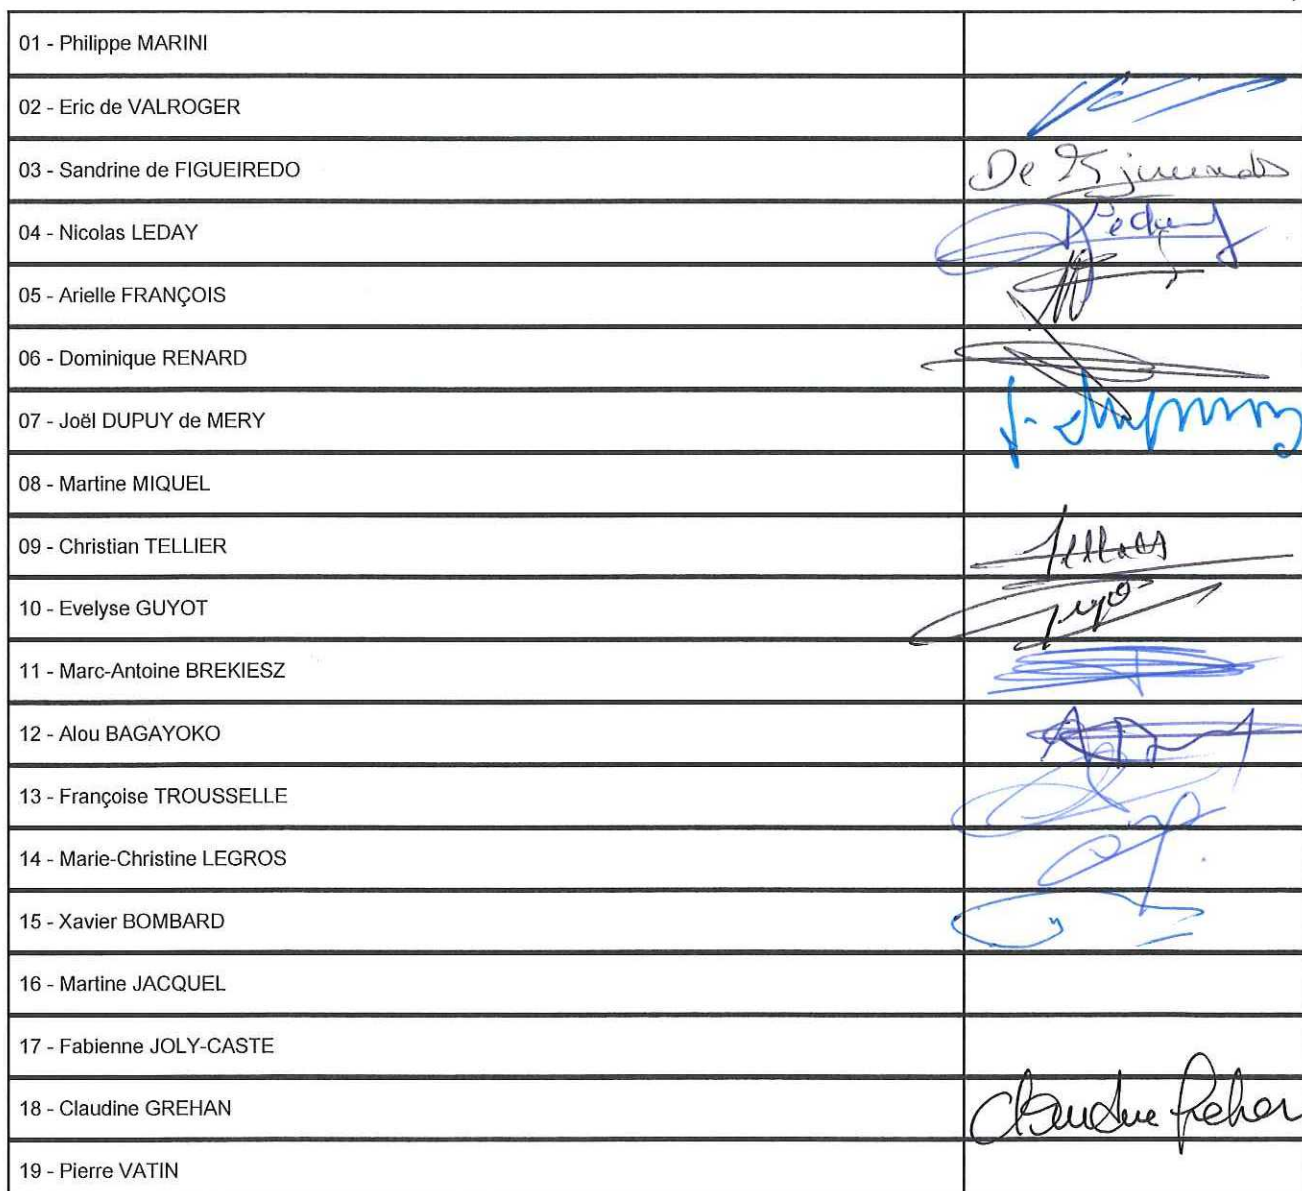 01 - Philippe MARINI
02 - Eric de VALROGER
03 - Sandrine de FIGUEIREDO
De
04 - Nicolas LEDAY
05 - Arielle FRANÇOIS
06 - Dominique RENARD
07 - Joël DUPUY de MERY
08 - Martine MIQUEL
09 - Christian TELLIER
10 - Evelyse GUYOT
11 - Marc-Antoine BREKIESZ
12 - Alou BAGAYOKO
13 - Françoise TROUSSELLE
14 - Marie-Christine LEGROS
15 - Xavier BOMBARD
16 - Martine JACQUEL
17 - Fabienne JOLY-CASTE
18 - Claudine GREHAN
Claudine Grehan
19 - Pierre VATIN